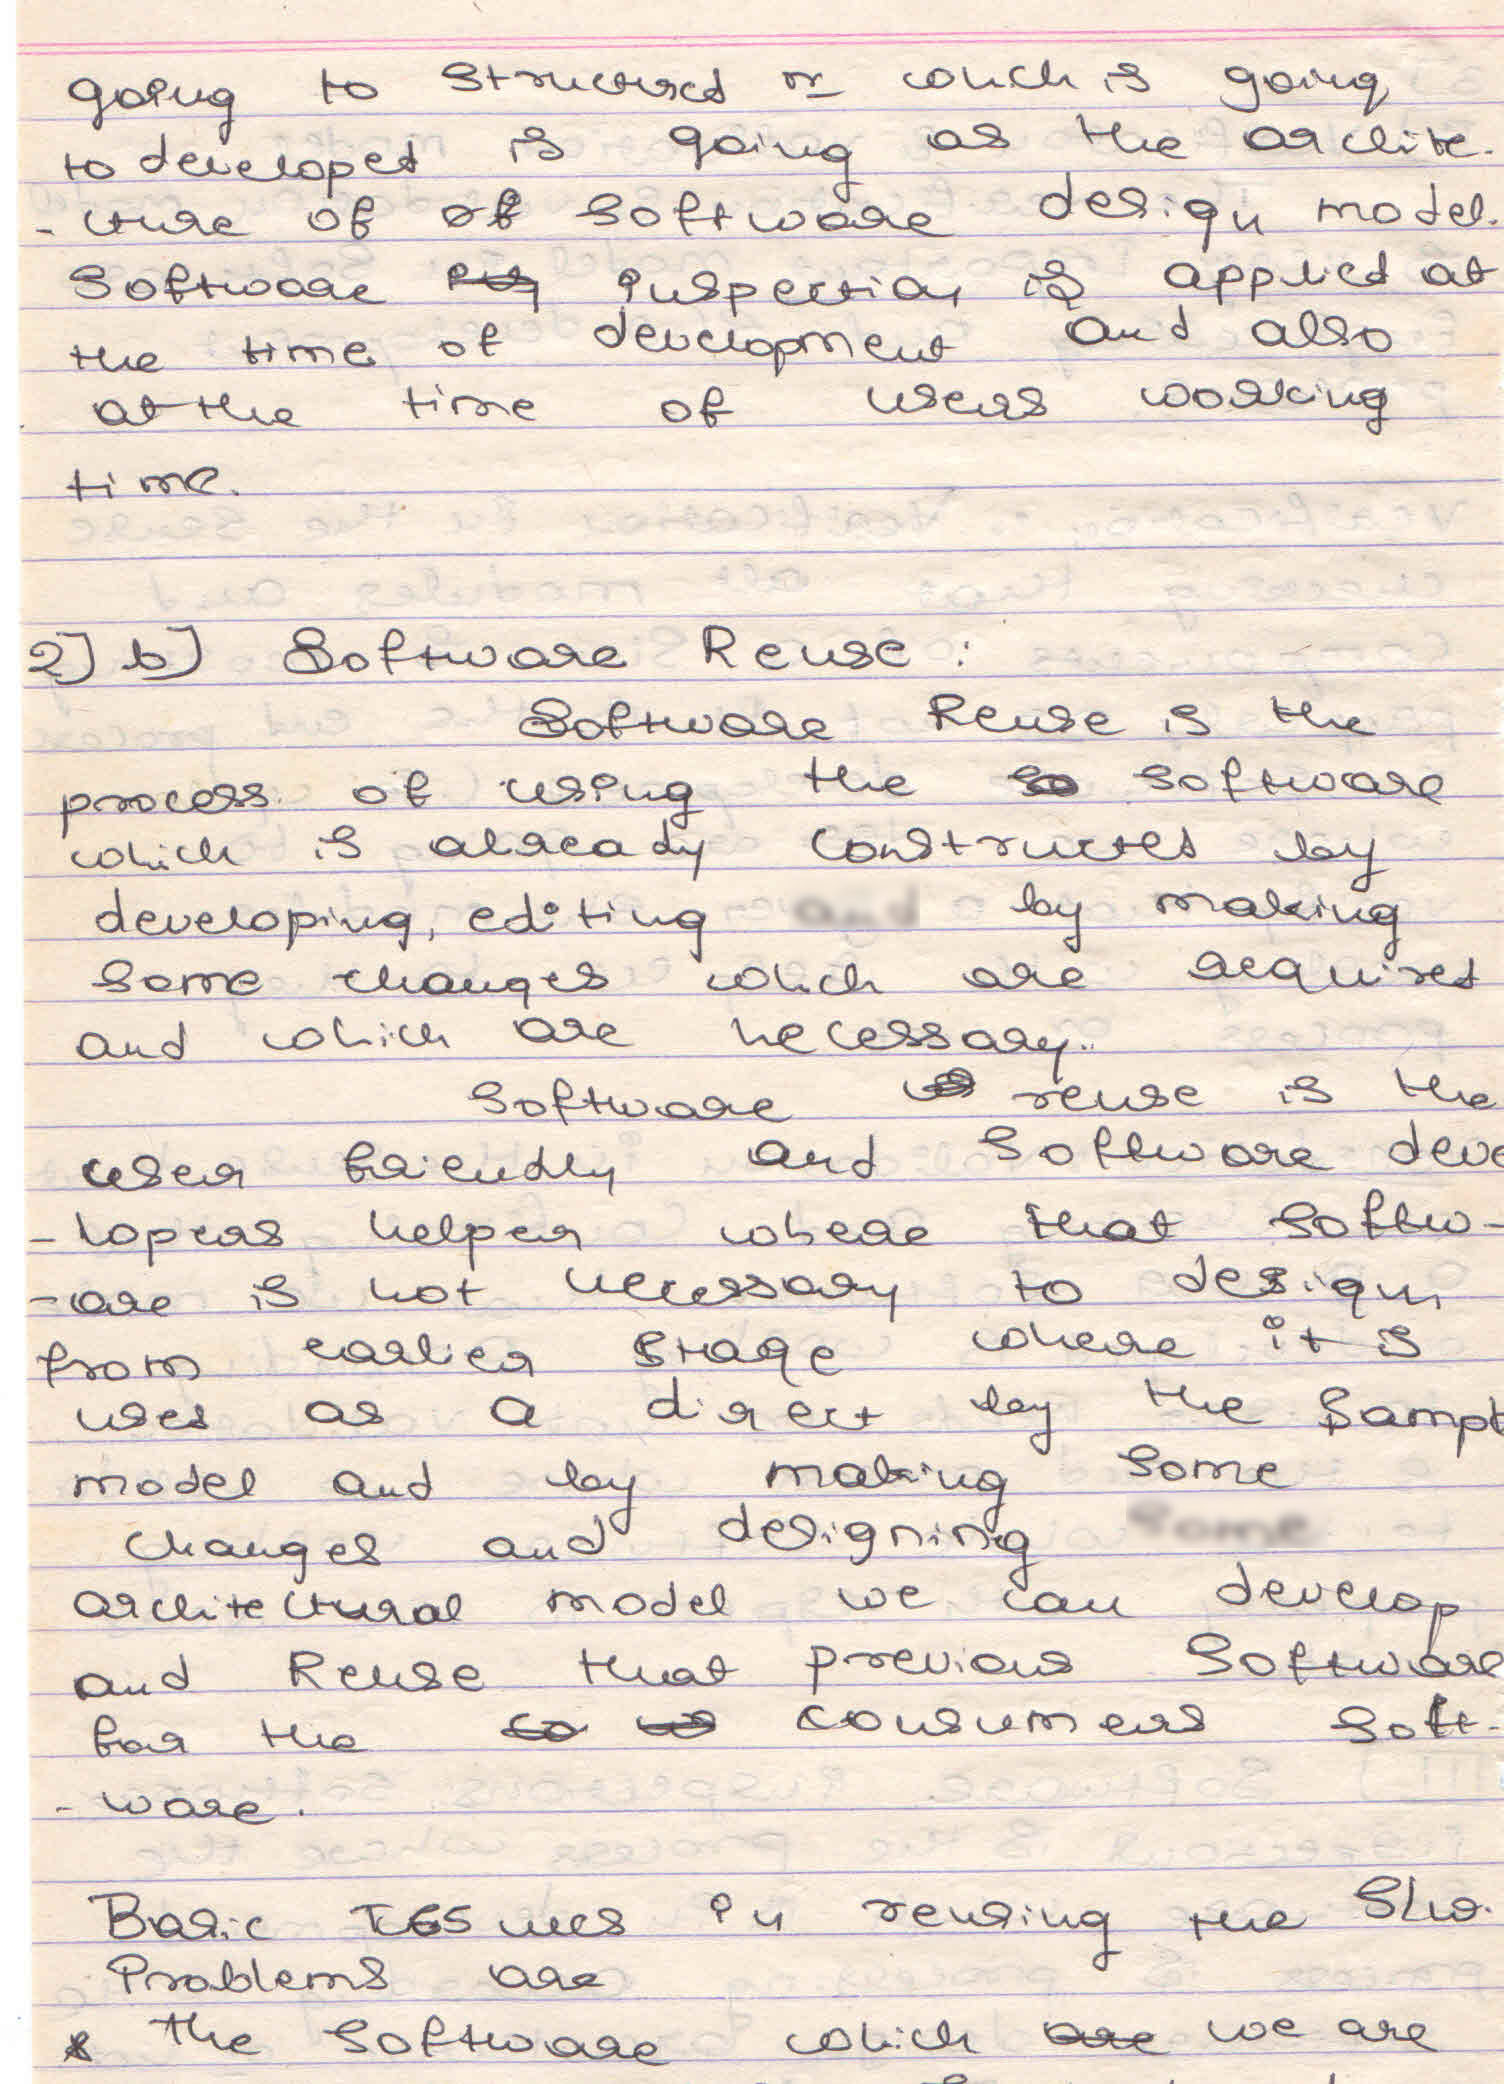 going to structured or which is going
to developed is going as the archite-
-cture of of software design model.
Software inspection is applied at
the time of development and also
at the time of users working
time.
2] b] Software Reuse :
Software Reuse is the
process of using the software
which is already constructed by
developing, editing by making
some changes which are required
and which are necessary..
Software reuse is the
user friendly and software deve
-lopers helper where that softw-
-are is not necessary to design
from earlier stage where it is
used as a direct by the Sampl
model and by making some
changes and designing
architectural model we can develop
and Reuse that previous Software
for the consumers soft-
-ware.
Basic Issues in reusing the S/w.
Problems are
* the software which are we are